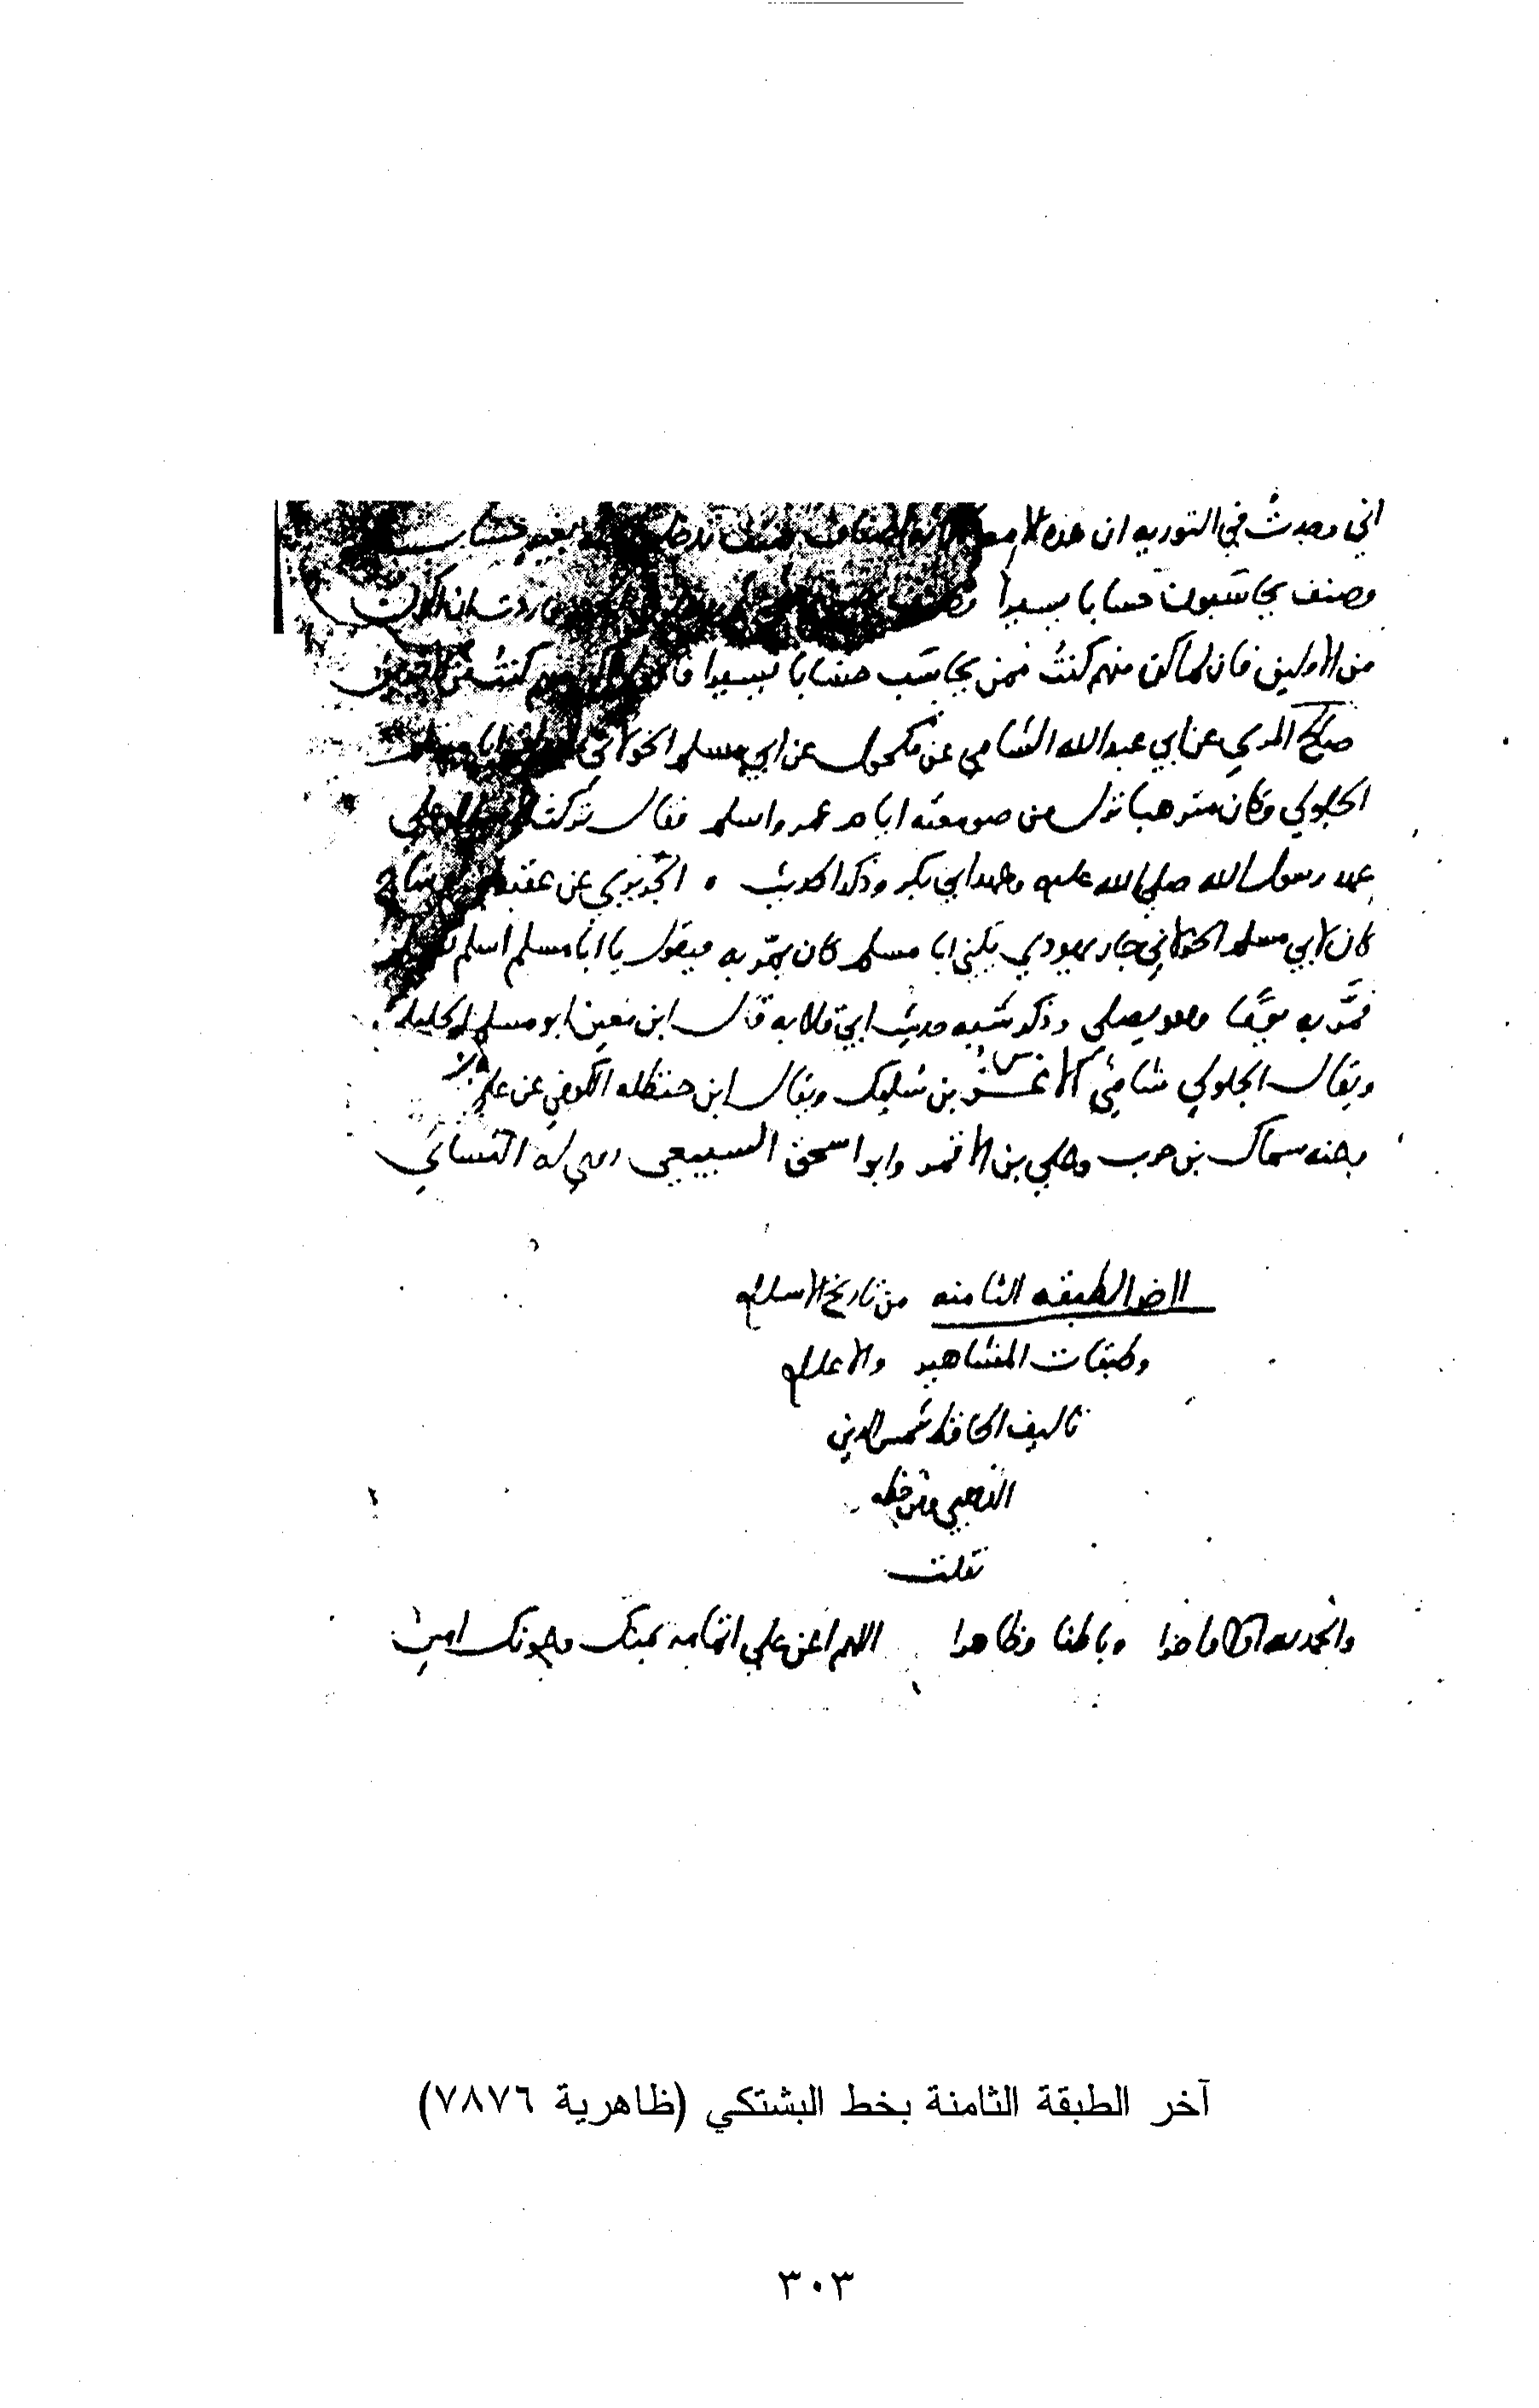 اني وجدت في التوريه ان هذه الامه بغير حساب
وصنف يحاسبون حسابا يسيرا
من الاولين فان لم اكن منهم كنت فممن يحاسب حسابا يسيرا
صالح المري عن ابي عبد الله الشامي عن مكحول عن ابي مسلم الخولاني
الجلولي وكان مترهبا نزل من صومعته ايام عمر واسلم فقال تركت علي
عهد رسول الله صلى الله عليه وعهد ابي بكر وذكر الحديث ٠ الجريري عن عقبه
كان لابي مسلم الخولاني جار يهودي يكنى ابا مسلم كان يمر به فيقول يا ابا مسلم اسلم
فمر به يوما وهو يصلي وذكر شبيه حديث ابي قلابه قال ابن معين ابو مسلم الجليلي
ويقال الجلولي شامي الاغر بن سليك ويقال ابن حنظله الكوفي عن علي
وعنه سماك بن حرب وعلي بن الاقمر وابو اسحق السبيعي روى له النسائي
اخر الطبقه الثامنه من تاريخ الاسلام
وطبقات المشاهير والاعلام
تاليف الحافظ شمس الدين
الذهبي ومن خطه
نقلت
والحمد لله اولا واخرا وباطنا وظاهرا اللهم اعن علي اتمامه بمنك وعونك امين
آخر الطبقة الثامنة بخط البشتكي (ظاهرية ٧٨٧٦)
٣٠٣